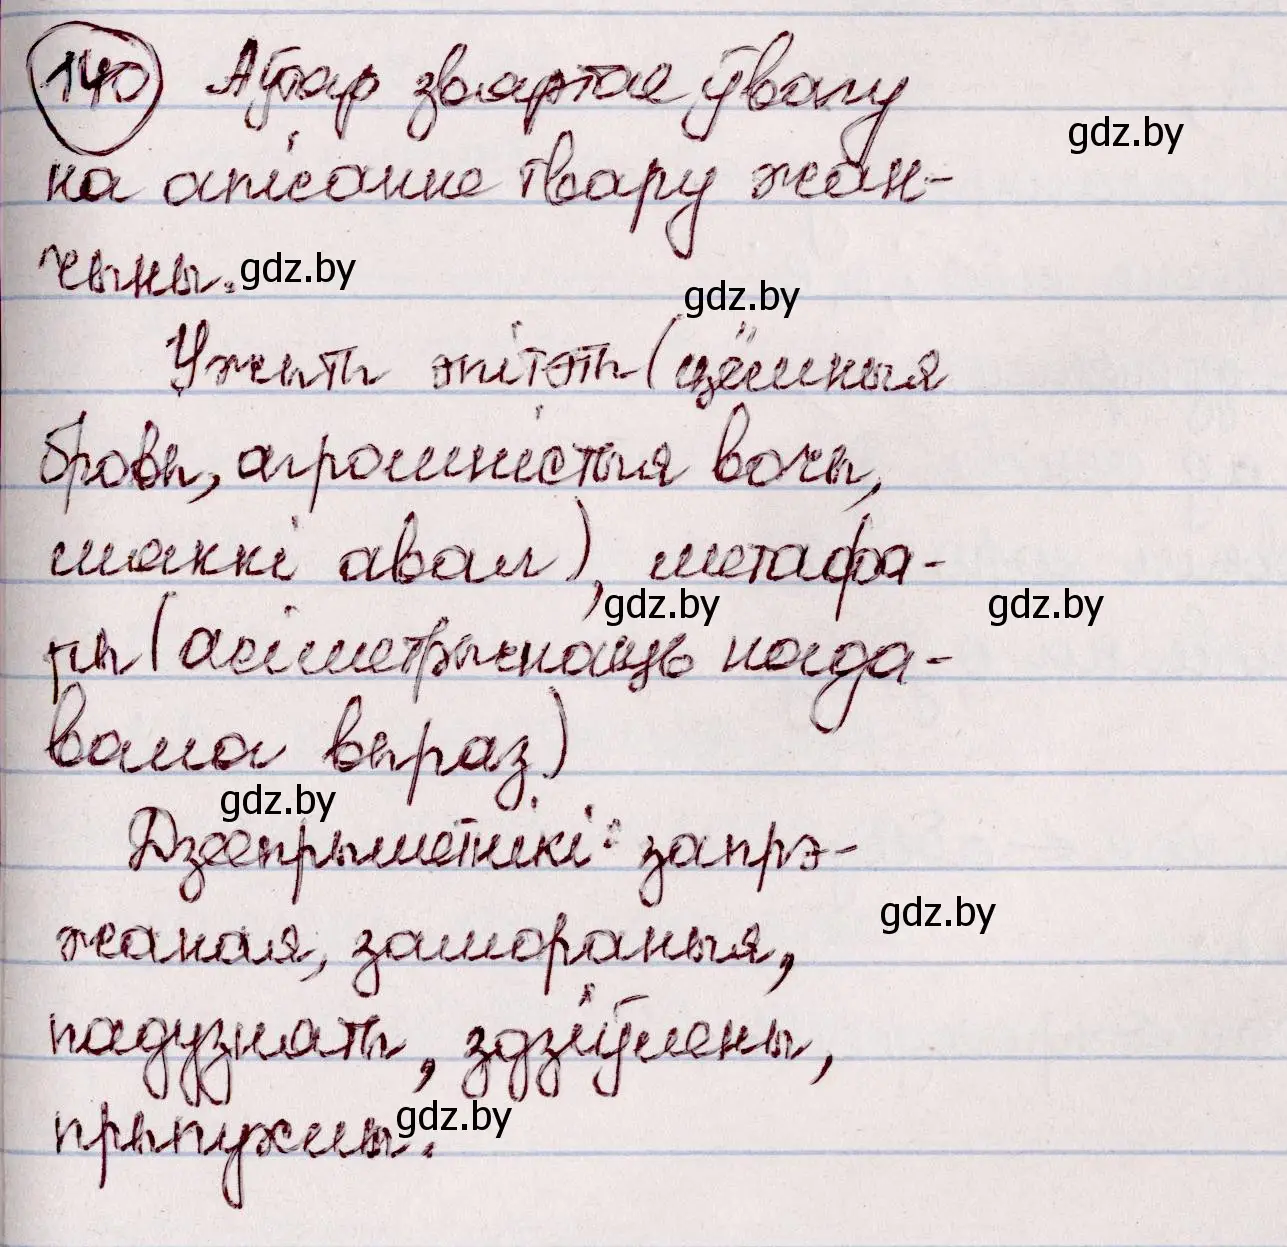 140 Аўтар звяртае ўвагу
gdz.by
на апісанне твару жан-
чыны.
gdz.by
gdz.by
Ужыты эпітэты (цёмныя
бровы, агромністыя вочы,
мяккі авал), метафа-
gdz.by
gdz.by
ры (асіметрычнасць нагда-
вала выраз)
gdz.by
Дзеепрыметнікі: запрэ-
gdz.by
жаная, замораныя,
падузняты, здзіўлены,
gdz.by